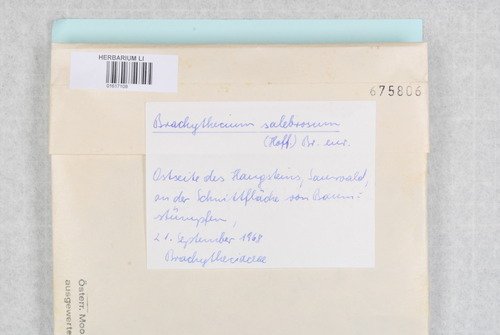 HERBARIUM LI
01617108
675806
Brachythecium salebrosum
(Hoff) Br. eur.
Ostseite des Haugsteins, Sauwald,
an der Schnittfläche von Baum=
stümpfen,
21. September 1968
Brachytheciaceae
Österr. Moo
ausgewerte